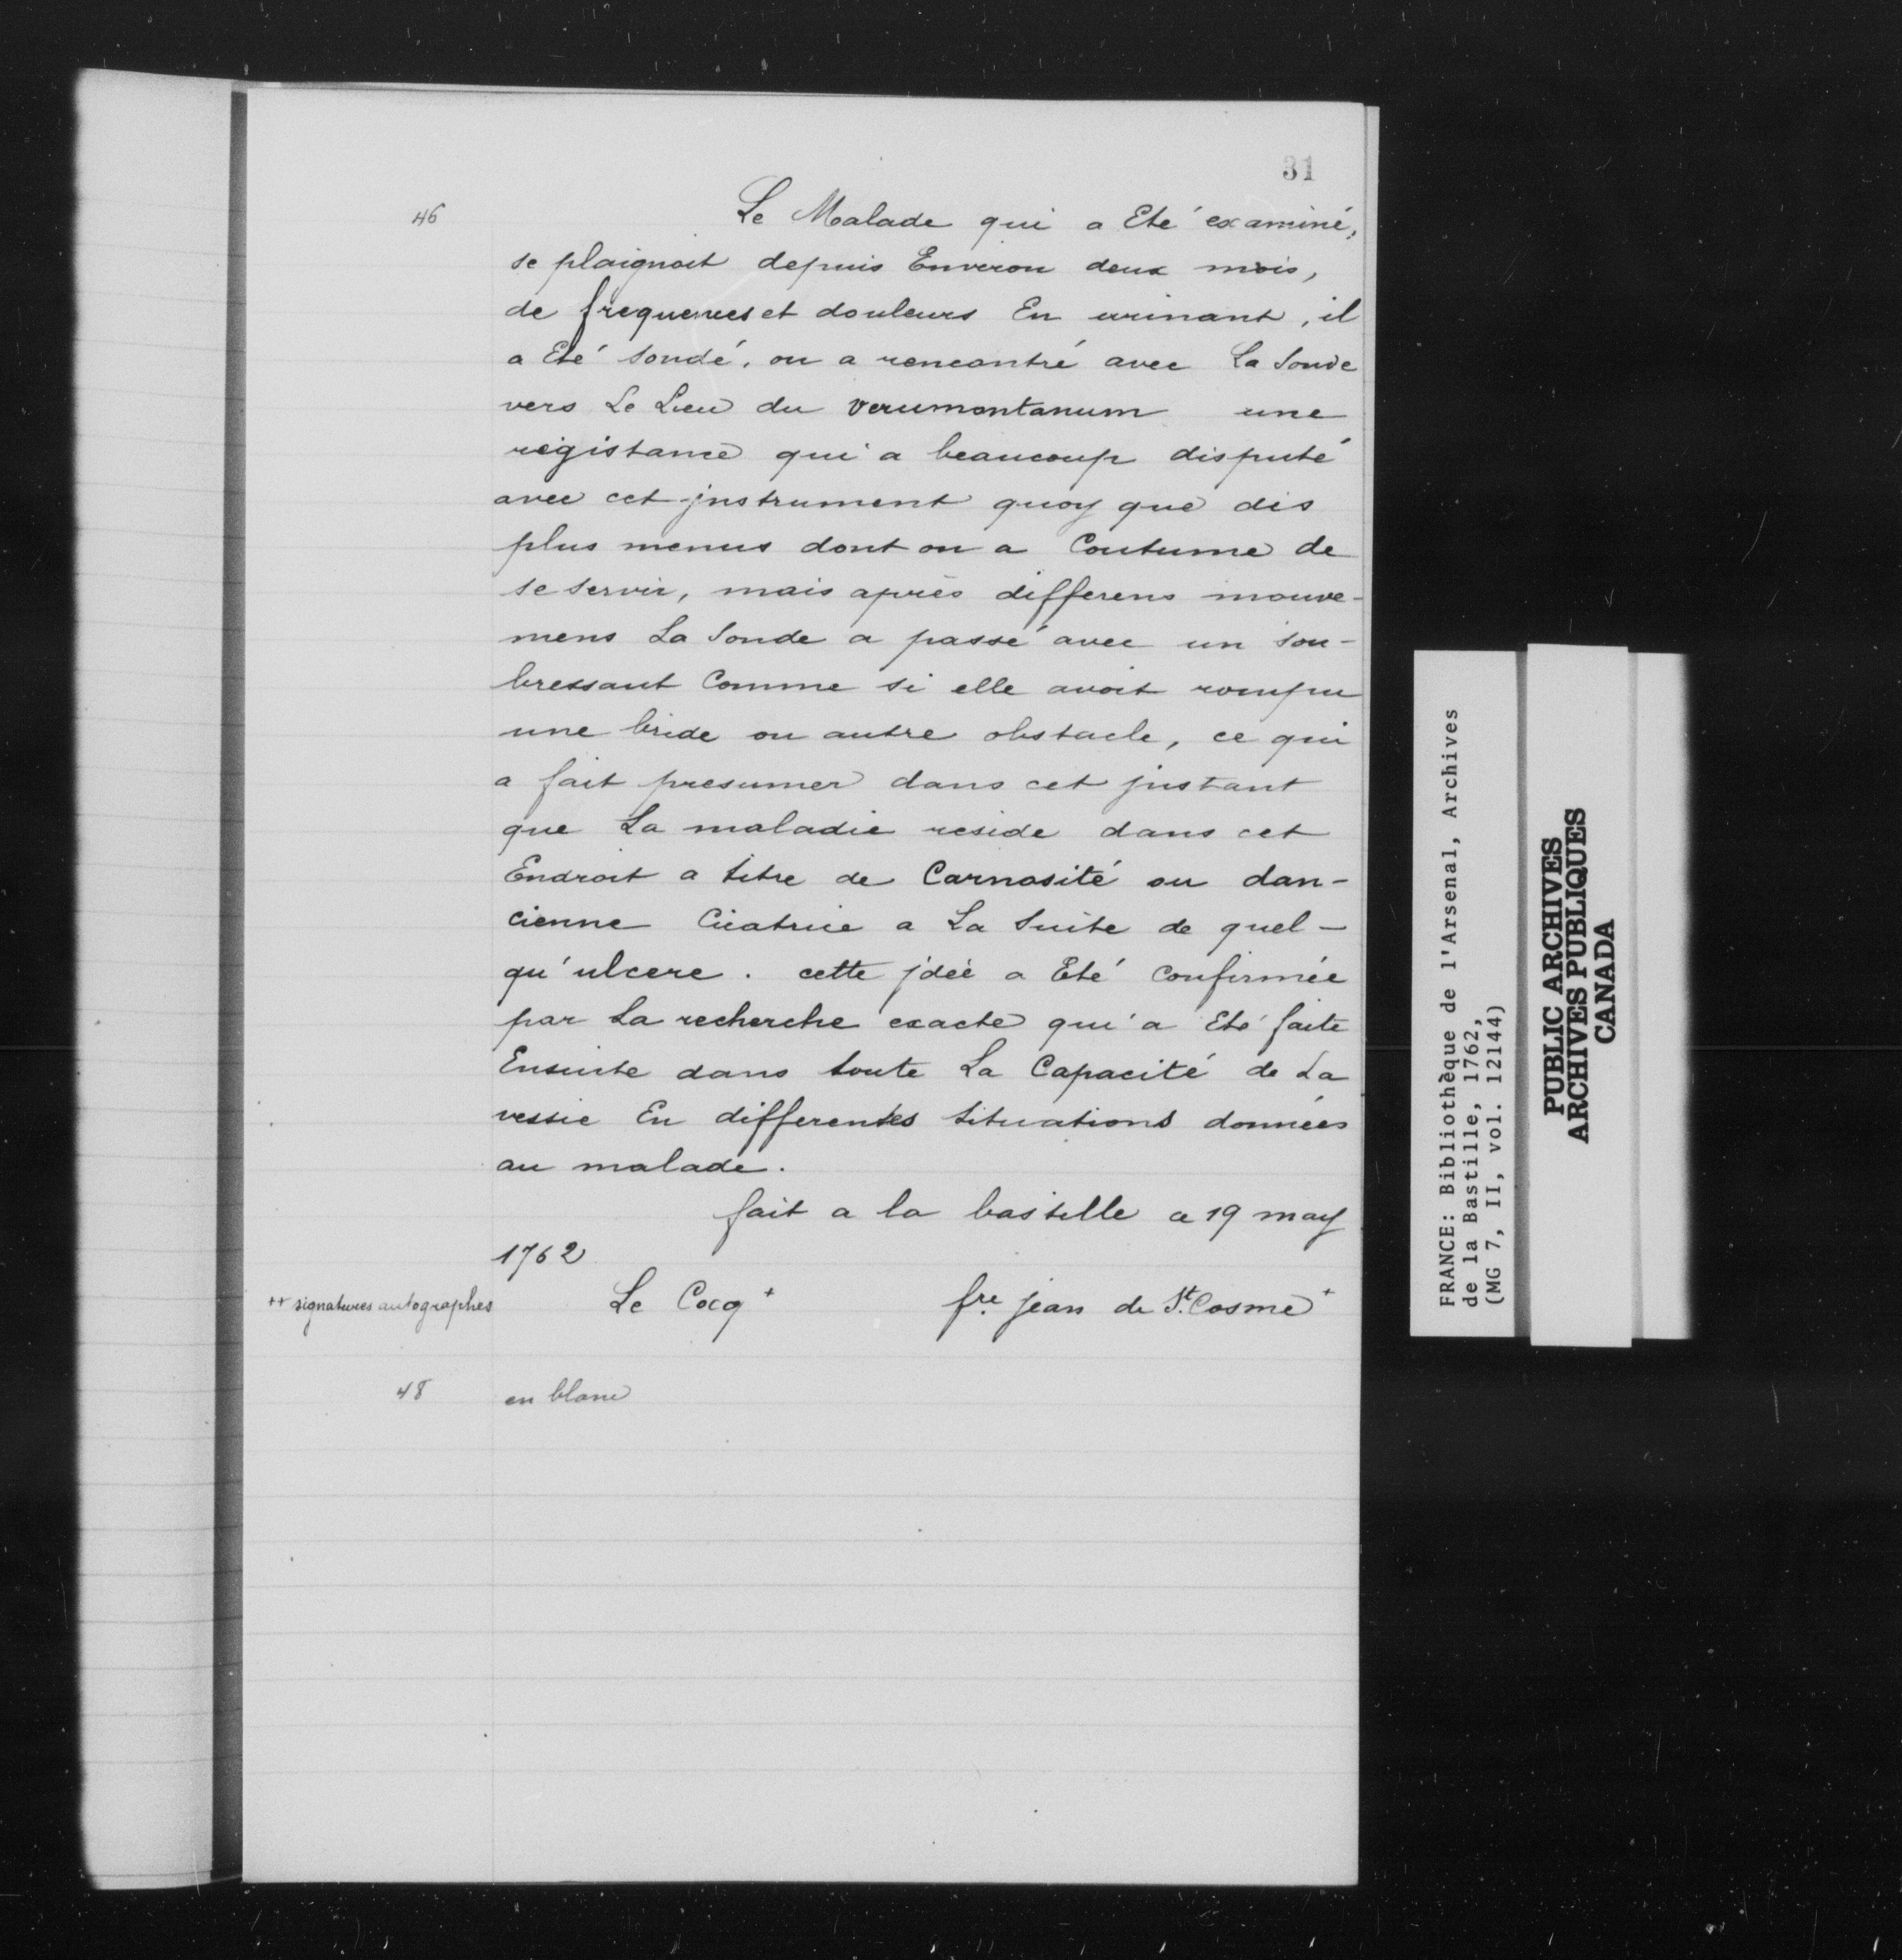 31
46
Le Malade qui a Eté examiné,
se plaignoit depuis Environ deux mois,
de frequences et douleurs En urinant, il
a Eté sondé, on a rencontré avec La Sonde
vers Le Lieu du verumontanum une
régistance qui a beaucoup disputé
avec cet jnstrument quoy que des
plus menus dont on a Coutume de
se servir, mais après differens mouve-
mens La Sonde a passé avec un sou-
bressaut Comme si elle avoit rompu
une bride ou autre obstacle, ce qui
a fait presumer dans cet jnstant
que La maladie reside dans cet
Endroit a titre de Carnosité ou dan-
cienne Cicatrice a La Suite de quel-
qu'ulcere. cette jdée a Eté Confirmée
par La recherche exacte qui a Eté faite
Ensuite dans toute La Capacité de La
vessie En differentes Situations données
au malade.
fait a la bastille ce 19 may
1762
++ signatures autographes
Le Cocq + fre jean de St. Cosme +
48
en blanc
FRANCE: Bibliothèque de l'Arsenal, Archives
de la Bastille, 1762,
(MG 7, II, vol. 12144)
PUBLIC ARCHIVES
ARCHIVES PUBLIQUES
CANADA